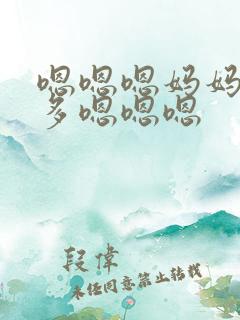 嗯嗯嗯妈妈
多嗯嗯嗯
段偉
未经同意禁止转载